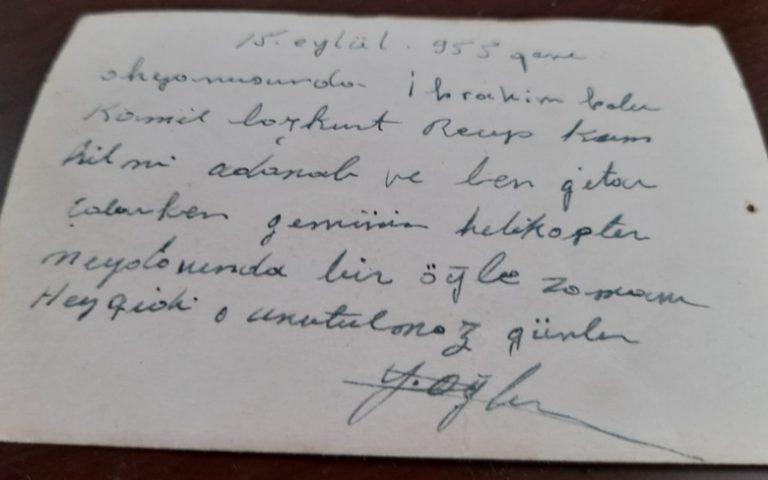 15. eylül. 955 gene
okyanusunda İbrahim
Kamil bozkurt Recep
hilmi adanalı ve ben gitar
çalarken geminin helikopter
meydanında bir öğle zamanı
Hey gidi o unutulmaz günler